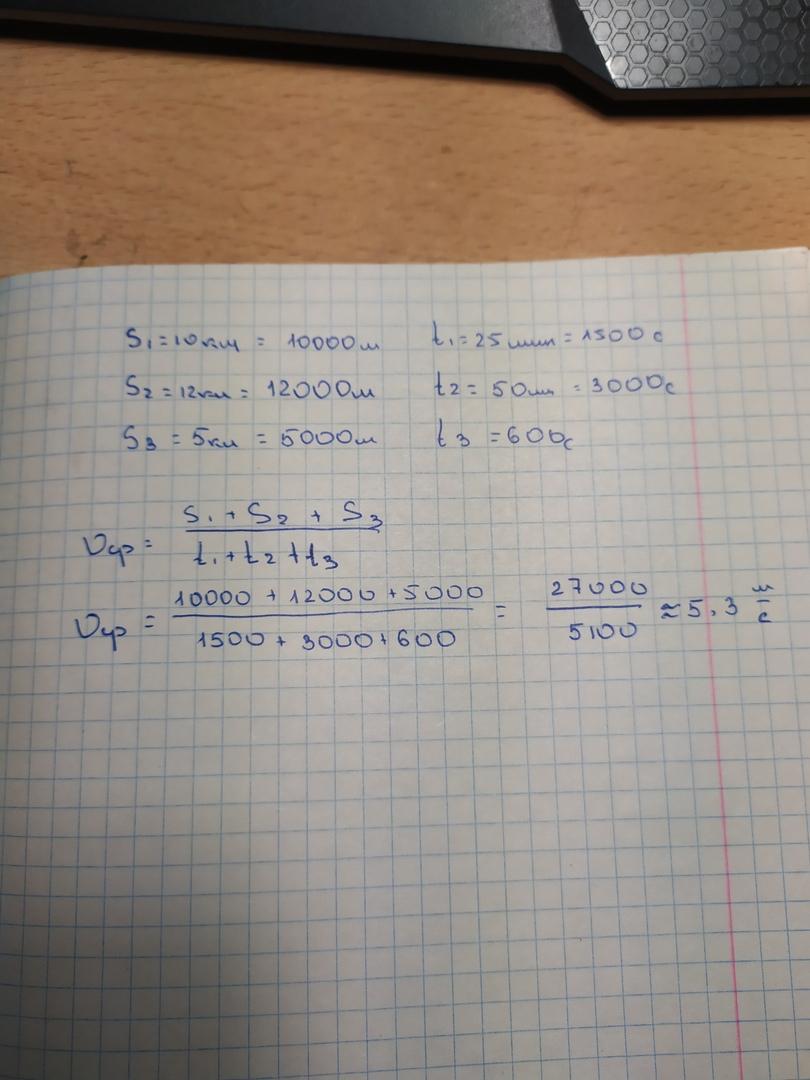 S₁ = 10км = 10000м t₁ = 25мин = 1500с
S₂ = 12км = 12000м t₂ = 50мин = 3000с
S₃ = 5км = 5000м t₃ = 600с
υср = (S₁ + S₂ + S₃) / (t₁ + t₂ + t₃)
υср = (10000 + 12000 + 5000) / (1500 + 3000 + 600) = 27000 / 5100 ≈ 5,3 м/с